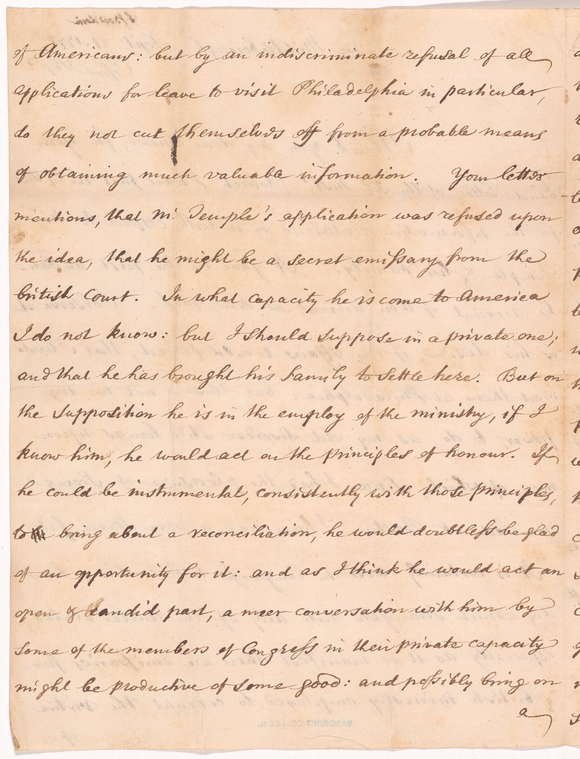 of Americans: but by an indiscriminate refusal of all
applications for leave to visit Philadelphia in particular,
do they not cut themselves off from a probable means
of obtaining much valuable information. Your letter
mentions, that Mr Temple's application was refused upon
the idea, that he might be a secret emissary from the
british Court. In what capacity he is come to America
I do not know: but I should suppose in a private one;
and that he has brought his family to settle here. But on
the supposition he is in the employ of the ministry, if I
know him, he would act on the principles of honour. If
he could be instrumental, consistently with those principles,
to bring about a reconciliation, he would doubtless be glad
of an opportunity for it: and as I think he would act an
open & candid part, a meer conversation with him by
some of the members of Congress in their private capacity
might be productive of some good: and possibly bring on
a